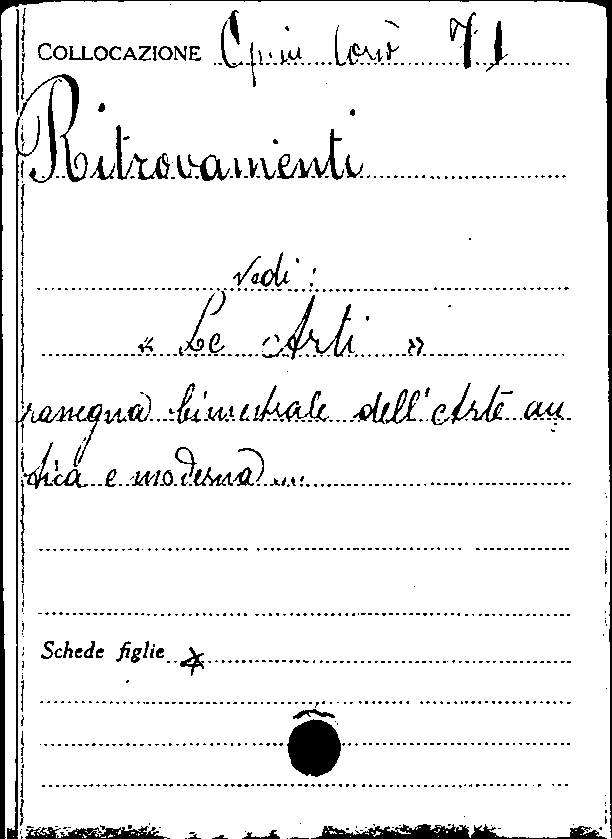 COLLOCAZIONE 71
Ritrovamenti
Vedi :
« Le Arti »
rassegna bimestrale dell'Arte an
tica e moderna ....
Schede figlie